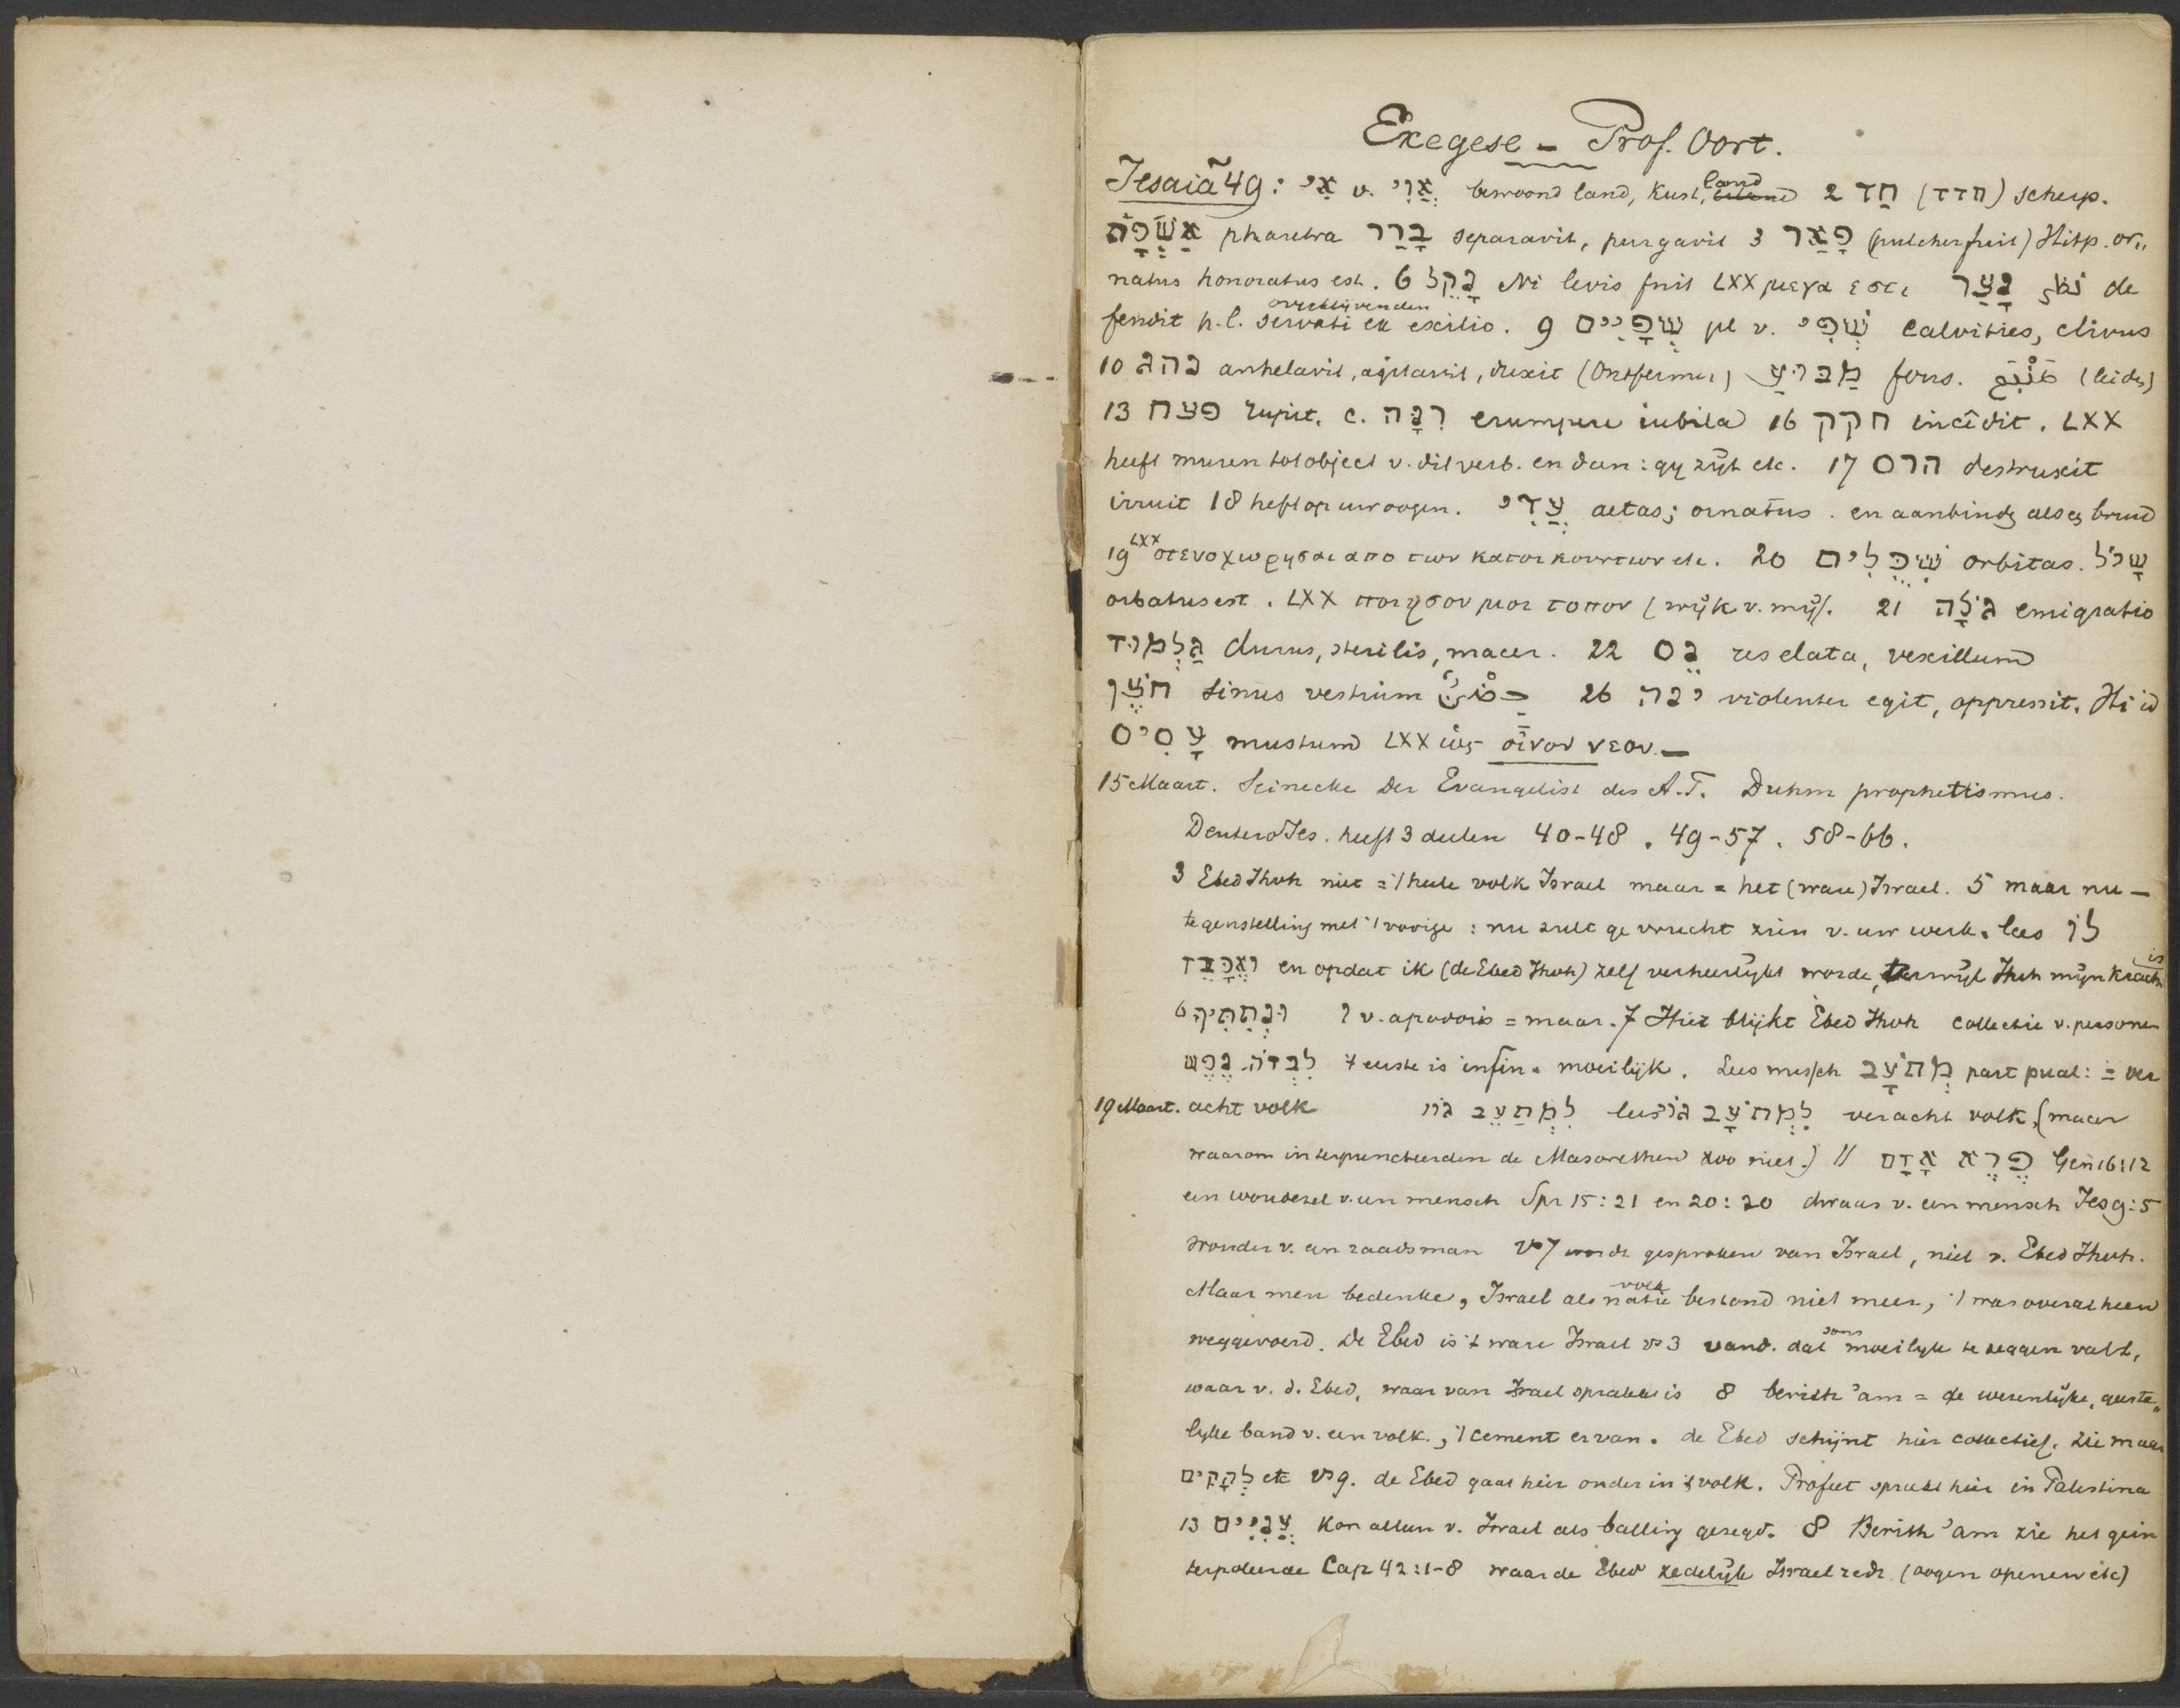 Exegese - Prof. Oort.
Jesaia 49: אִי v. אֲוִי bewoond land, kust, land 2 חַד (חדד) scherp.
אַשְׁפָּה pharetra בָּרַר separavit, purgavit 3 פָּאַר (pulcher fuit) Hitp. or„
natus honoratus est. 6 נָקֵל Ni levis fuit LXX μεγα εστι נָצַר نظر de
fendit h.l. servati ex exilio. overblijvenden 9 שְׁפָיִים pl v. שְׁפִי calvities, clivus
10 נהג anhelavit, agitavit, duxit (Ontfermer) מַבּוּעַ fons. (leider)
13 פצח rupit. c. רִנָּה erumpere iubila 16 חקק incîdit. LXX
heeft muren tot object v. dit verb. en dan: gij zijt etc. 17 הרס destruxit
irruit 18 heft op uw oogen. עֲדִי aetas; ornatus. en aanbindg als eg bruid
19 LXX στενοχωρησαι απο των κατοικουντων etc. 20 שִׁכֻּלִים orbitas. שָׁכֹל
orbatus est. LXX ποιησον μοι τοπον (wijk v. mij). 21 גֹּלָה emigratio
גַּלְמוּד durus, sterilis, macer. 22 נֵס res elata, vexillum
חֹצֶן sinus vestium 26 ינה violenter egit, oppressit. Hi id
עָסִיס mustum LXX ὡς οἶνον νεον. —
15 Maart. Seinecke Der Evangelist des A.T. Duhm prophetismus.
DeuteroJes. heeft 3 deelen 40-48. 49-57. 58-66.
3 Ebed Jhvh niet = 't heele volk Israel maar = het (ware) Israel. 5 maar nu —
tegenstelling met 't vorige: nu zult ge vrucht zien v. uw werk. lees לוֹ
וְאֶכָּבֵד en opdat ik (de Ebed Jhvh) zelf verheerlijkt worde, terwijl Jhvh mijn kracht is
6 וּנְתַתִּיךָ ו v. apodosis = maar. 7 Hier blijkt Ebed Jhvh collectie v. personen
לִבְזֹה נֶפֶשׁ 't eerste is infin. moeilijk. Lees missch מְתֹעָב part pual: = ver
19 Maart. acht volk לִמְתַעֵב גּוֹי lees לִמְתֹעָב גּוֹי veracht volk, (maar
waarom interpuncteerden de Masorethen zoo niet.) // פֶּרֶא אָדָם Gen 16:12
een woudezel v. een mensch Spr 15:21 en 20:20 dwaas v. een mensch Jes 9:5
wonder v. een raadsman vs 7 wordt gesproken van Israel, niet v. Ebed Jhvh.
Maar men bedenke, Israel als natie volk bestond niet meer, 't was overal heen
weggevoerd. De Ebed is 't ware Israel vs 3 vand. dat soms moeilijk te zeggen valt,
waar v. d. Ebed, waar van Israel sprake is 8 berith 'am = de wezenlijke, geeste„
lijke band v. een volk, 't cement ervan. de Ebed schijnt hier collectief. zie maar
לְהָקִים etc vs 9. de Ebed gaat hier onder in 't volk. Profeet spreekt hier in Palestina
13 עֲנִיִּים kan alleen v. Israel als balling gezegd. 8 Berith 'am zie het gein
terpoleerde Cap 42:1-8 waar de Ebed zedelijk Israel redt. (oogen openen etc)